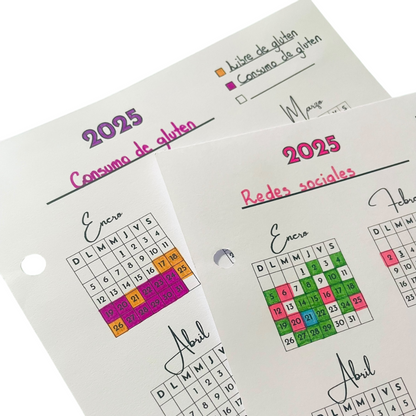 Libre de glúten
Consumo de glúten
2025
Consumo de gluten
Marzo
Enero
D L M M J V S
1 2 3 4
5 6 7 8 9 10 11
12 13 14 15 16 17 18
19 20 21 22 23 24 25
26
Abril
2025
Redes sociales
Enero
D L M M J V S
1 2 3 4
5 6 7 8 9 10 11
12 13 14 15 16 17 18
19 20 21 22 23 24 25
26 27 28 29 30 31
Febre
D L
2
9
16
23
Abril
D L M M J V S
1 2 3 4 5